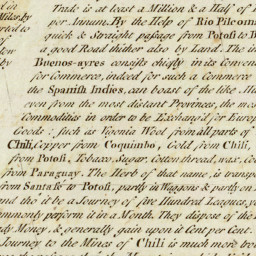 Trade is at least a Million & a Half of
per Annum. By the Help of Rio Pilcoma
quick & Straight passage from Potosi to B
a good Road thither also by Land. The in
Buenos-ayres consists chiefly in its Conven
for Commerce, indeed for such a Commerce
the Spanish Indies, can boast of the like. Hi
even from the most distant Provinces, the mos
Commodities in order to be Exchang'd for Europ
Goods; such as Vigonia Wool from all parts of
Chili, Copper from Coquimbo, Gold from Chili,
from Potosi, Tobacco, Sugar, Cotton thread, wax. Co
from Paraguay. The Herb of that name, is transp
from Santa fe to Potosi, partly in Waggons & partly on
and tho it be a Journey of five Hundred Leagues, y
mmonly perform it in a Month. They dispose of the
dy Money, & generally gain upon it Cent per Cent.
Journey to the Mines of Chili is much more trou